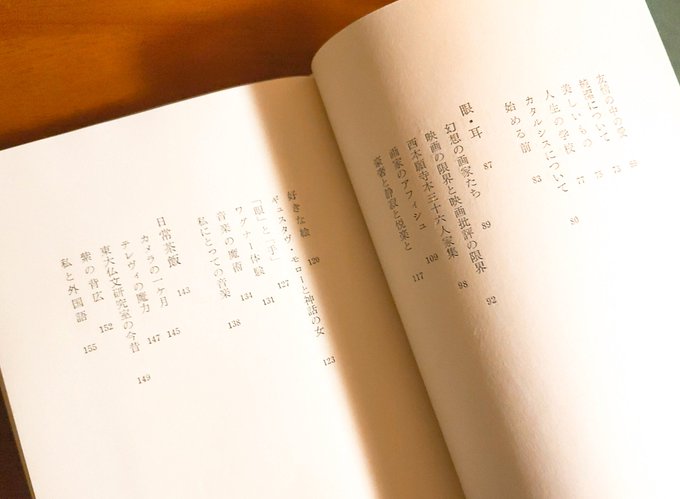 の中の愛
について 73
美しいもの 75
人生の学校 77
カタルシスについて 80
始める前 83
眼・耳 87
幻想の画家たち 89
映画の限界と映画批評の限界 92
西本願寺本三十六人家集 98
画家のアフィシュ 109
豪奢と静寂と悦楽と 117
好きな絵 120
ギュスタヴ・モローと神話の女 123
「眼」と「手」 127
ワグナー体験 131
音楽の魔術 134
私にとっての音楽 138
日常茶飯 143
カメラの一ヶ月 145
テレヴィの魔力 147
東大仏文研究室の今昔 149
紫の背広 152
私と外国語 155